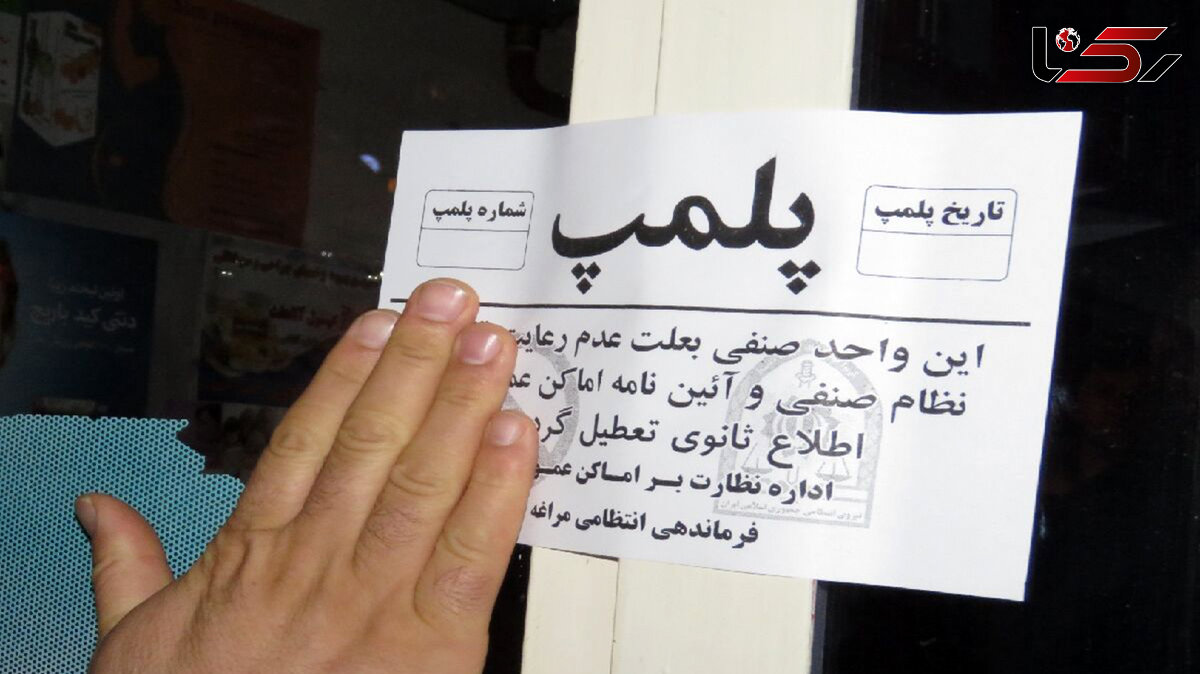 رکنا
تاریخ پلمپ
پلمپ
شماره پلمپ
این واحد صنفی بعلت عدم رعایت
نظام صنفی و آئین نامه اماکن
اطلاع ثانوی تعطیل
اداره نظارت بر اماکن
فرماندهی انتظامی مراغه
نیروی انتظامی جمهوری اسلامی ایران